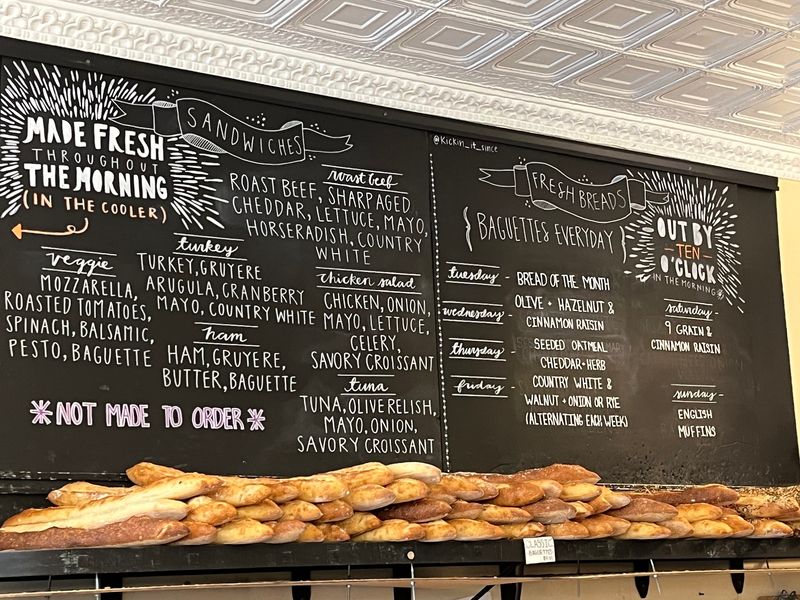 MADE FRESH
THROUGHOUT
THE MORNING
(IN THE COOLER)
SANDWICHES
roast beef
ROAST BEEF, SHARP AGED
CHEDDAR, LETTUCE, MAYO,
HORSERADISH, COUNTRY
WHITE
veggie
MOZZARELLA,
ROASTED TOMATOES,
SPINACH, BALSAMIC,
PESTO, BAGUETTE
turkey
TURKEY, GRUYERE
ARUGULA, CRANBERRY
MAYO, COUNTRY WHITE
ham
HAM, GRUYERE,
BUTTER, BAGUETTE
chicken salad
CHICKEN, ONION,
MAYO, LETTUCE,
CELERY,
SAVORY CROISSANT
tuna
TUNA, OLIVE RELISH,
MAYO, ONION,
SAVORY CROISSANT
*NOT MADE TO ORDER*
@kickin_it_since
FRESH BREADS
{BAGUETTES EVERYDAY}
OUT BY
-TEN-
O'CLOCK
IN THE MORNING
tuesday - BREAD OF THE MONTH
wednesday - OLIVE + HAZELNUT &
CINNAMON RAISIN
thursday - SEEDED OATMEAL
CHEDDAR-HERB
friday - COUNTRY WHITE &
WALNUT + ONION OR RYE
(ALTERNATING EACH WEEK)
saturday -
9 GRAIN &
CINNAMON RAISIN
sunday -
ENGLISH
MUFFINS
CLASSIC
BAGUETTES